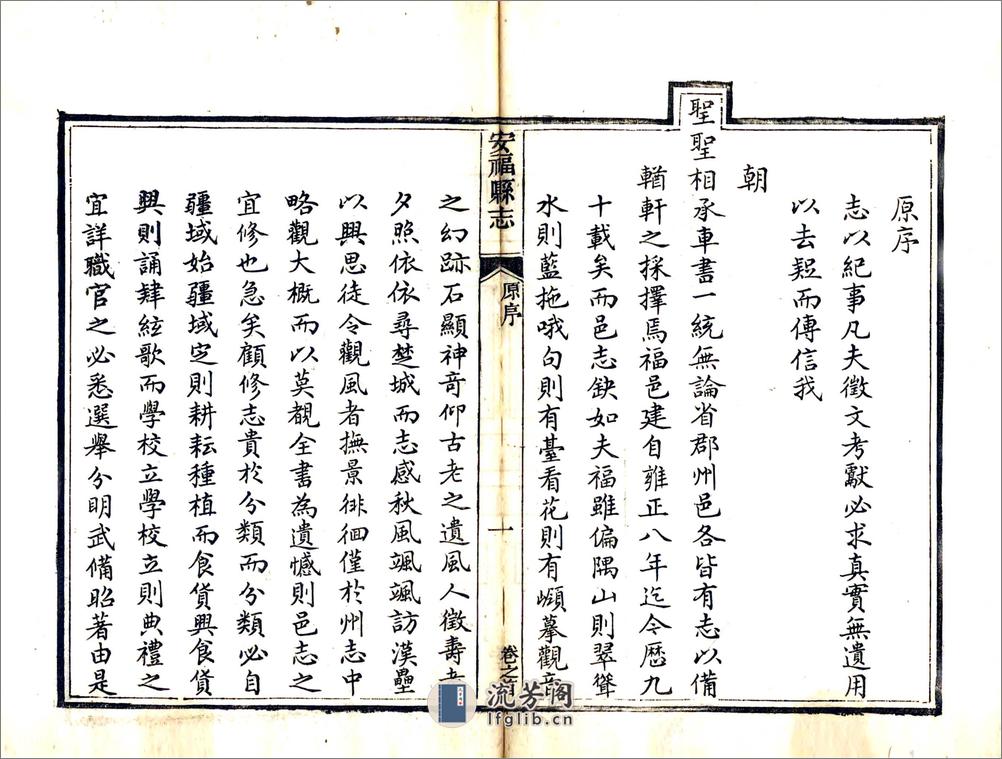 原序
志以紀事凡夫徵文考獻必求真實無遺用
以去疑而傳信我
朝
聖聖相承車書一統無論省郡州邑各皆有志以備
輶軒之採擇焉福邑建自雍正八年迄今歷九
十載矣而邑志缺如夫福雖偏隅山則翠聳
水則藍拖哦句則有臺看花則有嶺摹觀音
安福縣志
原序
一
卷之首
之幻跡石顯神奇仰古老之遺風人徵壽考
夕照依依尋楚城而志感秋風颯颯訪漢壘
以興思徒令觀風者撫景徘徊僅於州志中
略觀大概而以莫覩全書為遺憾則邑志之
宜修也急矣顧修志貴於分類而分類必自
疆域始疆域定則耕耘種植而食貨興食貨
興則誦肄絃歌而學校立學校立則典禮之
宜詳職官之必悉選舉分明武備昭著由是
流芳阁
lfglib.cn